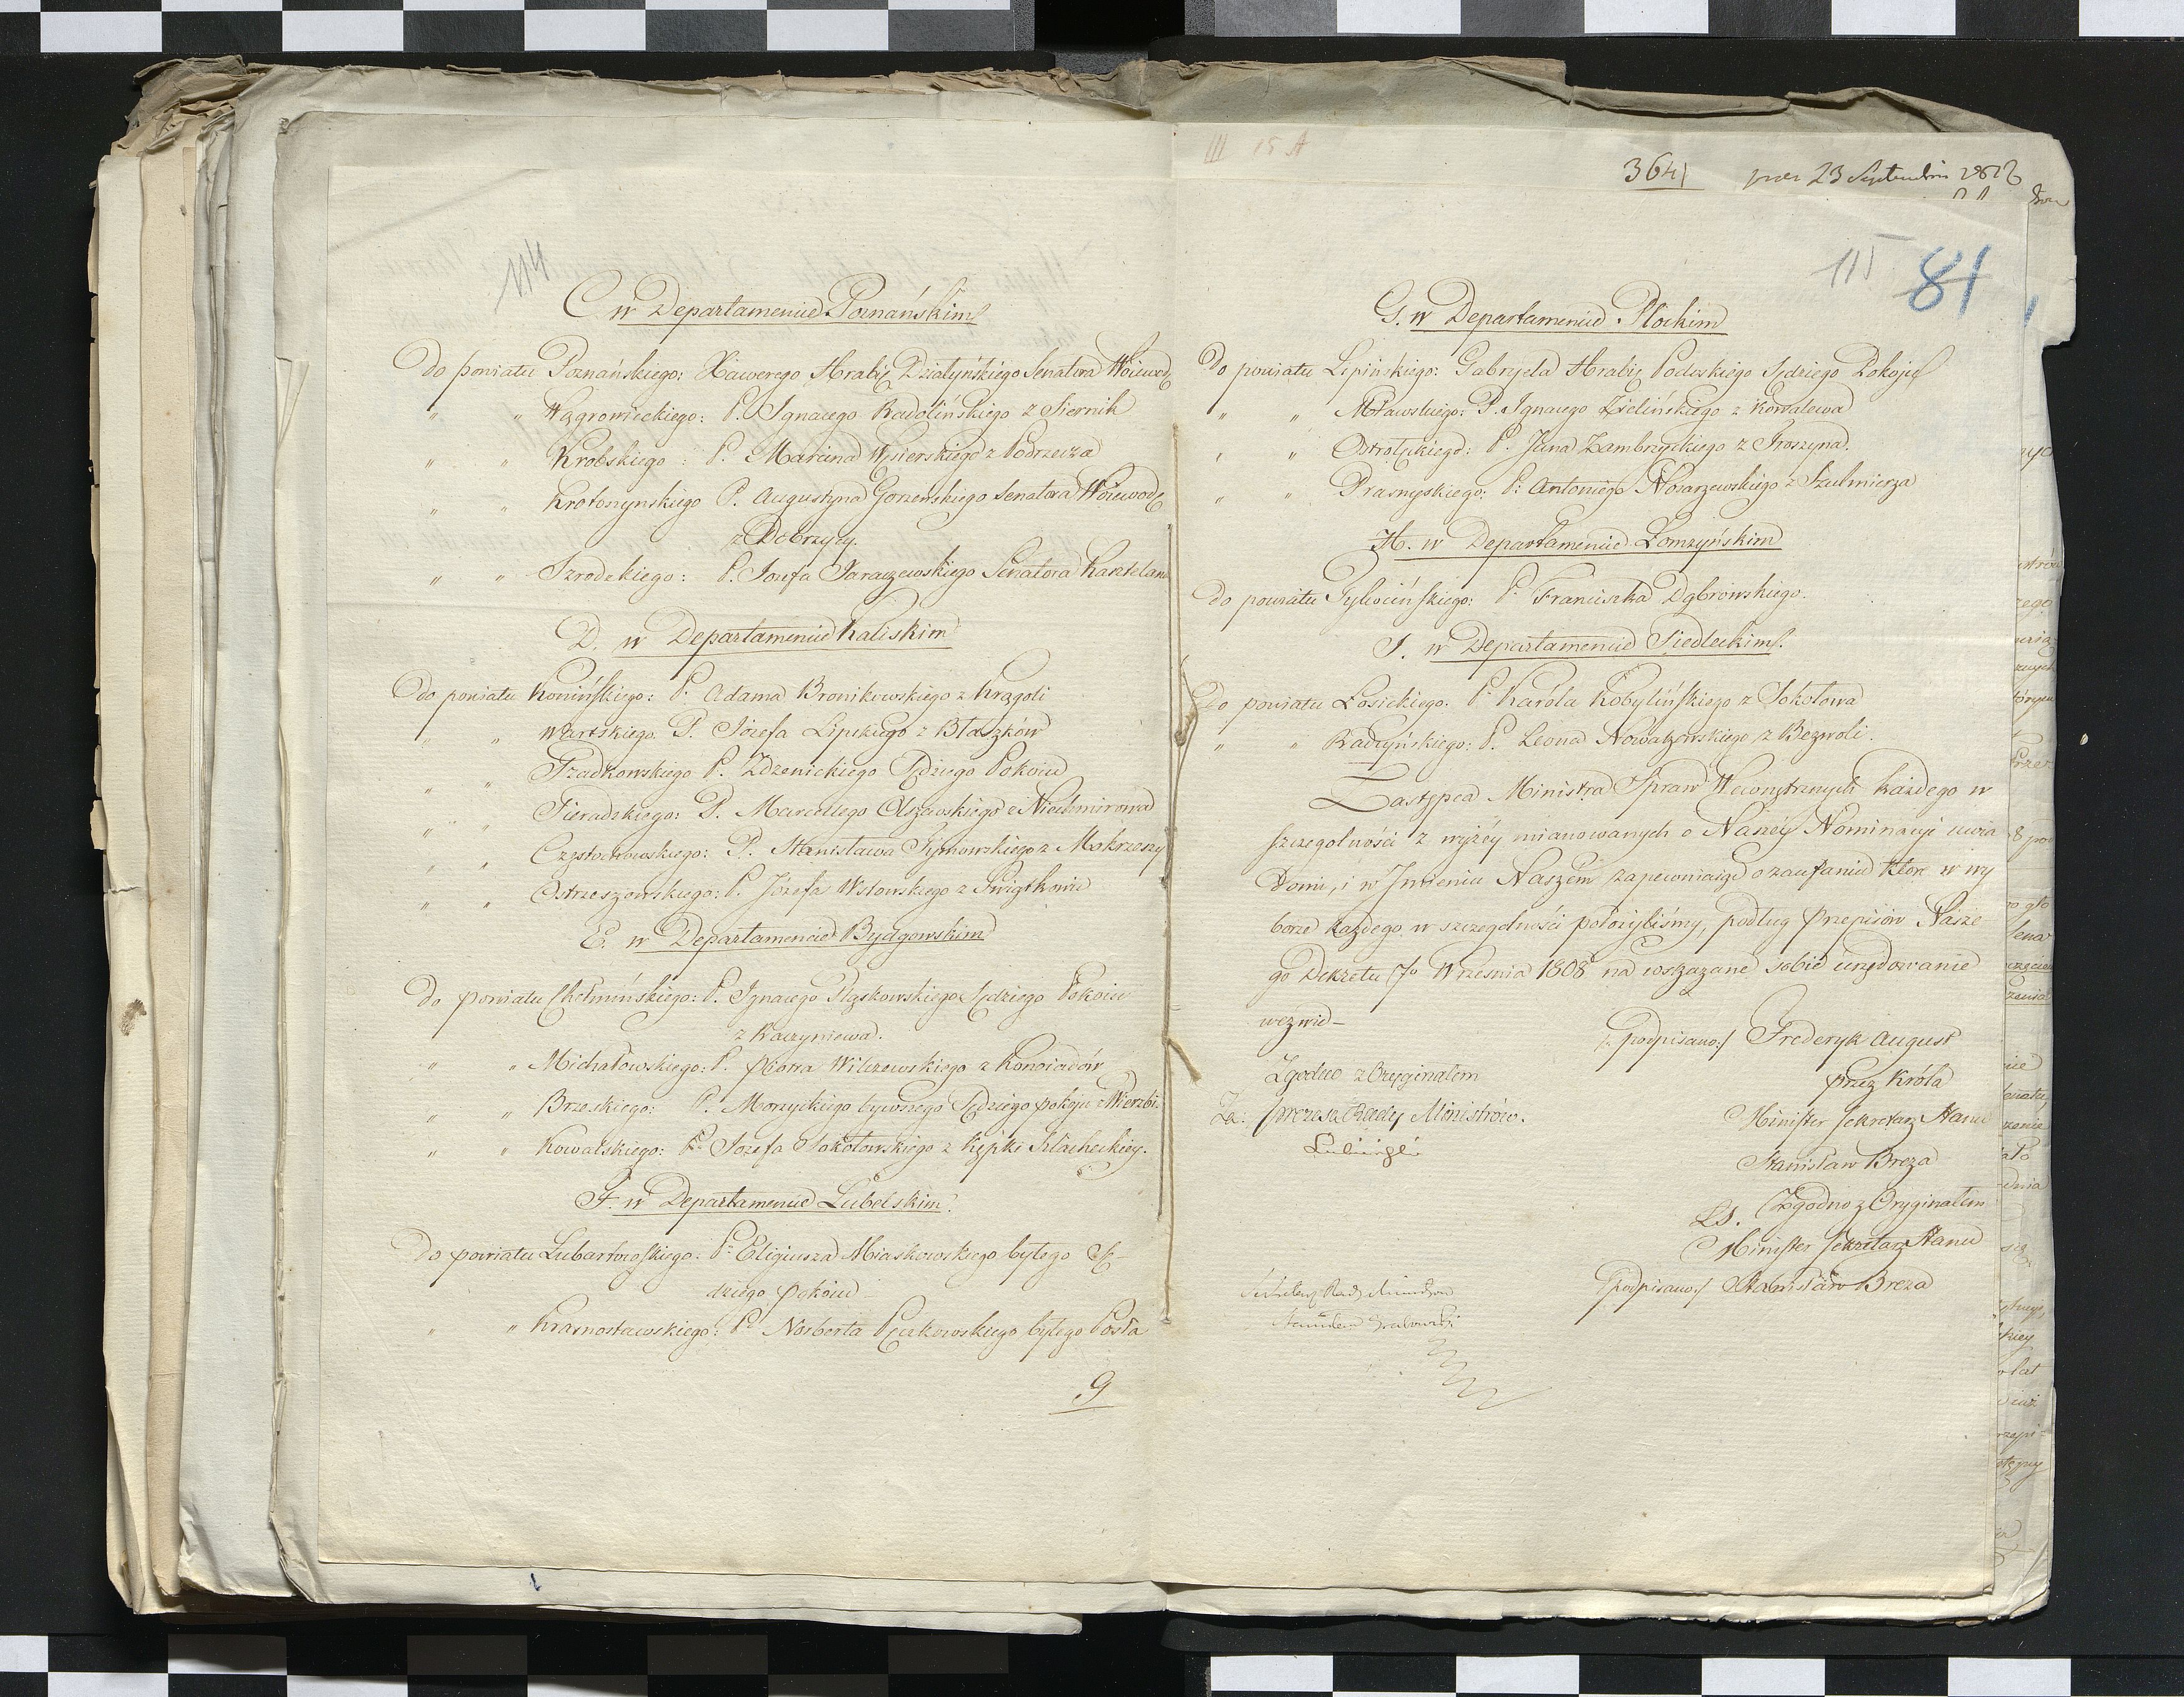 114
C w Departamencie Poznańskim
Do powiatu Poznańskiego: Xawerego Hrabię Działyńskiego Senatora Woiewodę
" " Wągrowieckiego: P. Ignacego Radolińskiego z Siernik
" " Krobskiego: P. Marcina Węsierskiego z Podrzecza
" " Krotoszynskiego P. Augustyna Gorzenskiego Senatora Woiewodę
z Dobrzycy.
" " Szrodzkiego: P. Jozefa Jaraczewskiego Senatora Kasztelana
D. w Departamencie Kaliskim
Do powiatu Konińskiego: P. Adama Bronikowskiego z Krągoli
" " Wartskiego P. Józefa Lipskiego z Błaszków
" " Szadkowskiego P. Zdzenickiego Sędziego Pokoiu
" " Sieradzkiego: P. Marcellego Olszewskiego z Niechmirowa
" " Częstochowskiego: P. Stanisława Tymowskiego z Mokrzeszy
" " Ostrzeszowskiego: P. Józefa Wstowskiego z Swiątkowic
E. w Departamencie Bydgowskim
Do powiatu Chełmińskiego: P. Ignacego Pląskowskiego Sędziego Pokoiu
z Raczyniewa.
" " Michałowskiego: P. Piotra Wilczewskiego z Konoiadów
" " Brzeskiego: P. Morzyckiego bywszego Sędziego pokoju z Wierzbi
" " Kowalskiego: P. Jozefa Sokołowskiego z Kępki Szlacheckiey.
F. w Departamencie Lubelskim.
Do powiatu Lubartowskiego: P. Eligiusza Miaskowskiego byłego Sę-
dziego pokoiu
" " Krasnostawskiego: P. Norberta Pęczkowskiego byłego Posła
9
III 15 A
3641 23 Septembris
115 81
G. w Departamencie Płockim
Do powiatu Lipińskiego: Gabryela Hrabię Podoskiego Sędziego Pokoju
" " Mławskiego: P. Ignacego Zielińskiego z Kowalewa
" " Ostrołęckiego: P. Jana Zambrzyckiego z Troszyna.
" " Prasnyskiego: P. Antoniego Nosarzewskiego z Szulmierza
H. w Departamencie Łomzyńskim
Do powiatu Tykocińskiego: P. Franciszka Dąbrowskiego.
I. w Departamencie Siedleckim.
Do powiatu Łosickiego. P. Karóla Kobylińskiego z Sokołowa
" " Radzyńskiego: P. Leona Nowatzewskiego z Bezwoli.
Zastępca Ministra Spraw Wewnętrznych każdego w
szczegolności z wyżéy mianowanych o Naszéy Nominacyi uwia
domi, i w Jmieniu Naszém zapewniaiąc o zaufaniu które w wy
borze każdego w szczegolności położyliśmy, podług przepisów Nasze
go Dekretu 7o Wrzesnia 1808 na wskazane sobie urzędowanie
wezwie-
/: podpisano:/ Frederyk August
przez Króla
Zgodno z Oryginałem
Minister Sekretarz Stanu
Za: prezesa Rady Ministrów.
Stanisław Breza
Łubieński
LS. Zgodno z Oryginałem
Minister Sekretarz Stanu
/podpisano:/ Stanisław Breza
Sekretarz Rady Ministrow
Stanisław Grabowski